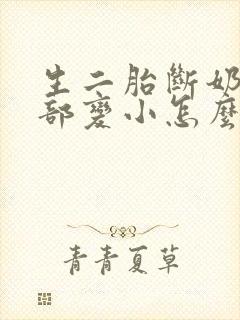 生二胎斷奶
部變小怎麼
青青夏草